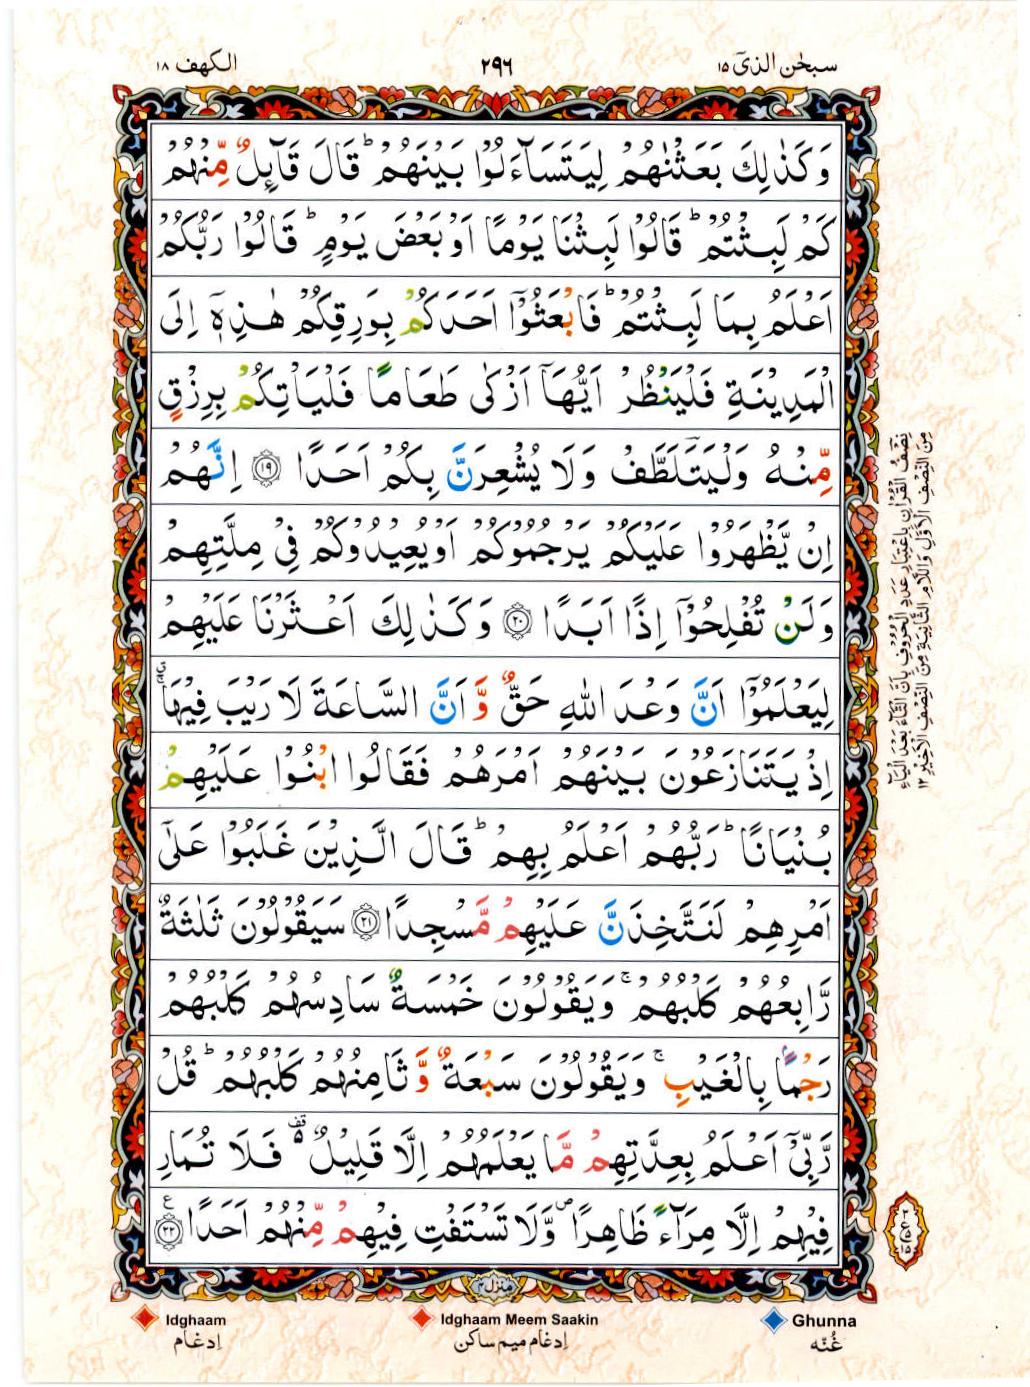 سبحٰن الذیٓ ١٥
٢٩٦
الكهف ١٨
وَكَذٰلِكَ بَعَثْنٰهُمْ لِيَتَسَآءَلُوْا بَيْنَهُمْ ؕ قَالَ قَآئِلٌ مِّنْهُمْ
كَمْ لَبِثْتُمْ ؕ قَالُوْا لَبِثْنَا يَوْمًا اَوْ بَعْضَ يَوْمٍ ؕ قَالُوْا رَبُّكُمْ
اَعْلَمُ بِمَا لَبِثْتُمْ ؕ فَابْعَثُوْۤا اَحَدَكُمْ بِوَرِقِكُمْ هٰذِهٖۤ اِلَى
الْمَدِيْنَةِ فَلْيَنْظُرْ اَيُّهَاۤ اَزْكٰى طَعَامًا فَلْيَاْتِكُمْ بِرِزْقٍ
مِّنْهُ وَلْيَتَلَطَّفْ وَلَا يُشْعِرَنَّ بِكُمْ اَحَدًا ﴿١٩﴾ اِنَّهُمْ
اِنْ يَّظْهَرُوْا عَلَيْكُمْ يَرْجُمُوْكُمْ اَوْ يُعِيْدُوْكُمْ فِيْ مِلَّتِهِمْ
وَلَنْ تُفْلِحُوْۤا اِذًا اَبَدًا ﴿٢٠﴾ وَكَذٰلِكَ اَعْثَرْنَا عَلَيْهِمْ
لِيَعْلَمُوْۤا اَنَّ وَعْدَ اللّٰهِ حَقٌّ وَّاَنَّ السَّاعَةَ لَا رَيْبَ فِيْهَا
اِذْ يَتَنَازَعُوْنَ بَيْنَهُمْ اَمْرَهُمْ فَقَالُوا ابْنُوْا عَلَيْهِمْ
بُنْيَانًا ؕ رَبُّهُمْ اَعْلَمُ بِهِمْ ؕ قَالَ الَّذِيْنَ غَلَبُوْا عَلٰٓى
اَمْرِهِمْ لَنَتَّخِذَنَّ عَلَيْهِمْ مَّسْجِدًا ﴿٢١﴾ سَيَقُوْلُوْنَ ثَلٰثَةٌ
رَّابِعُهُمْ كَلْبُهُمْ ۚ وَيَقُوْلُوْنَ خَمْسَةٌ سَادِسُهُمْ كَلْبُهُمْ
رَجْمًا بِالْغَيْبِ ۚ وَيَقُوْلُوْنَ سَبْعَةٌ وَّثَامِنُهُمْ كَلْبُهُمْ ؕ قُلْ
رَّبِّيْۤ اَعْلَمُ بِعِدَّتِهِمْ مَّا يَعْلَمُهُمْ اِلَّا قَلِيْلٌ ۫ فَلَا تُمَارِ
فِيْهِمْ اِلَّا مِرَآءً ظَاهِرًا ۪ وَّلَا تَسْتَفْتِ فِيْهِمْ مِّنْهُمْ اَحَدًا ﴿٢٢﴾
نِصْفُ الْقُرْاٰنِ بِاعْتِبَارِ عَدَدِ الْحُرُوْفِ بِاَنَّ التَّاءَ بَعْدَ الْيَاءِ
مِنَ النِّصْفِ الْاَوَّلِ وَاللَّامِ الثَّانِيَةِ مِنَ النِّصْفِ الْاَخِيْرِ ١٢
منزل ٤
Idghaam
إدغام
Idghaam Meem Saakin
إدغام ميم ساكن
Ghunna
غُنّه